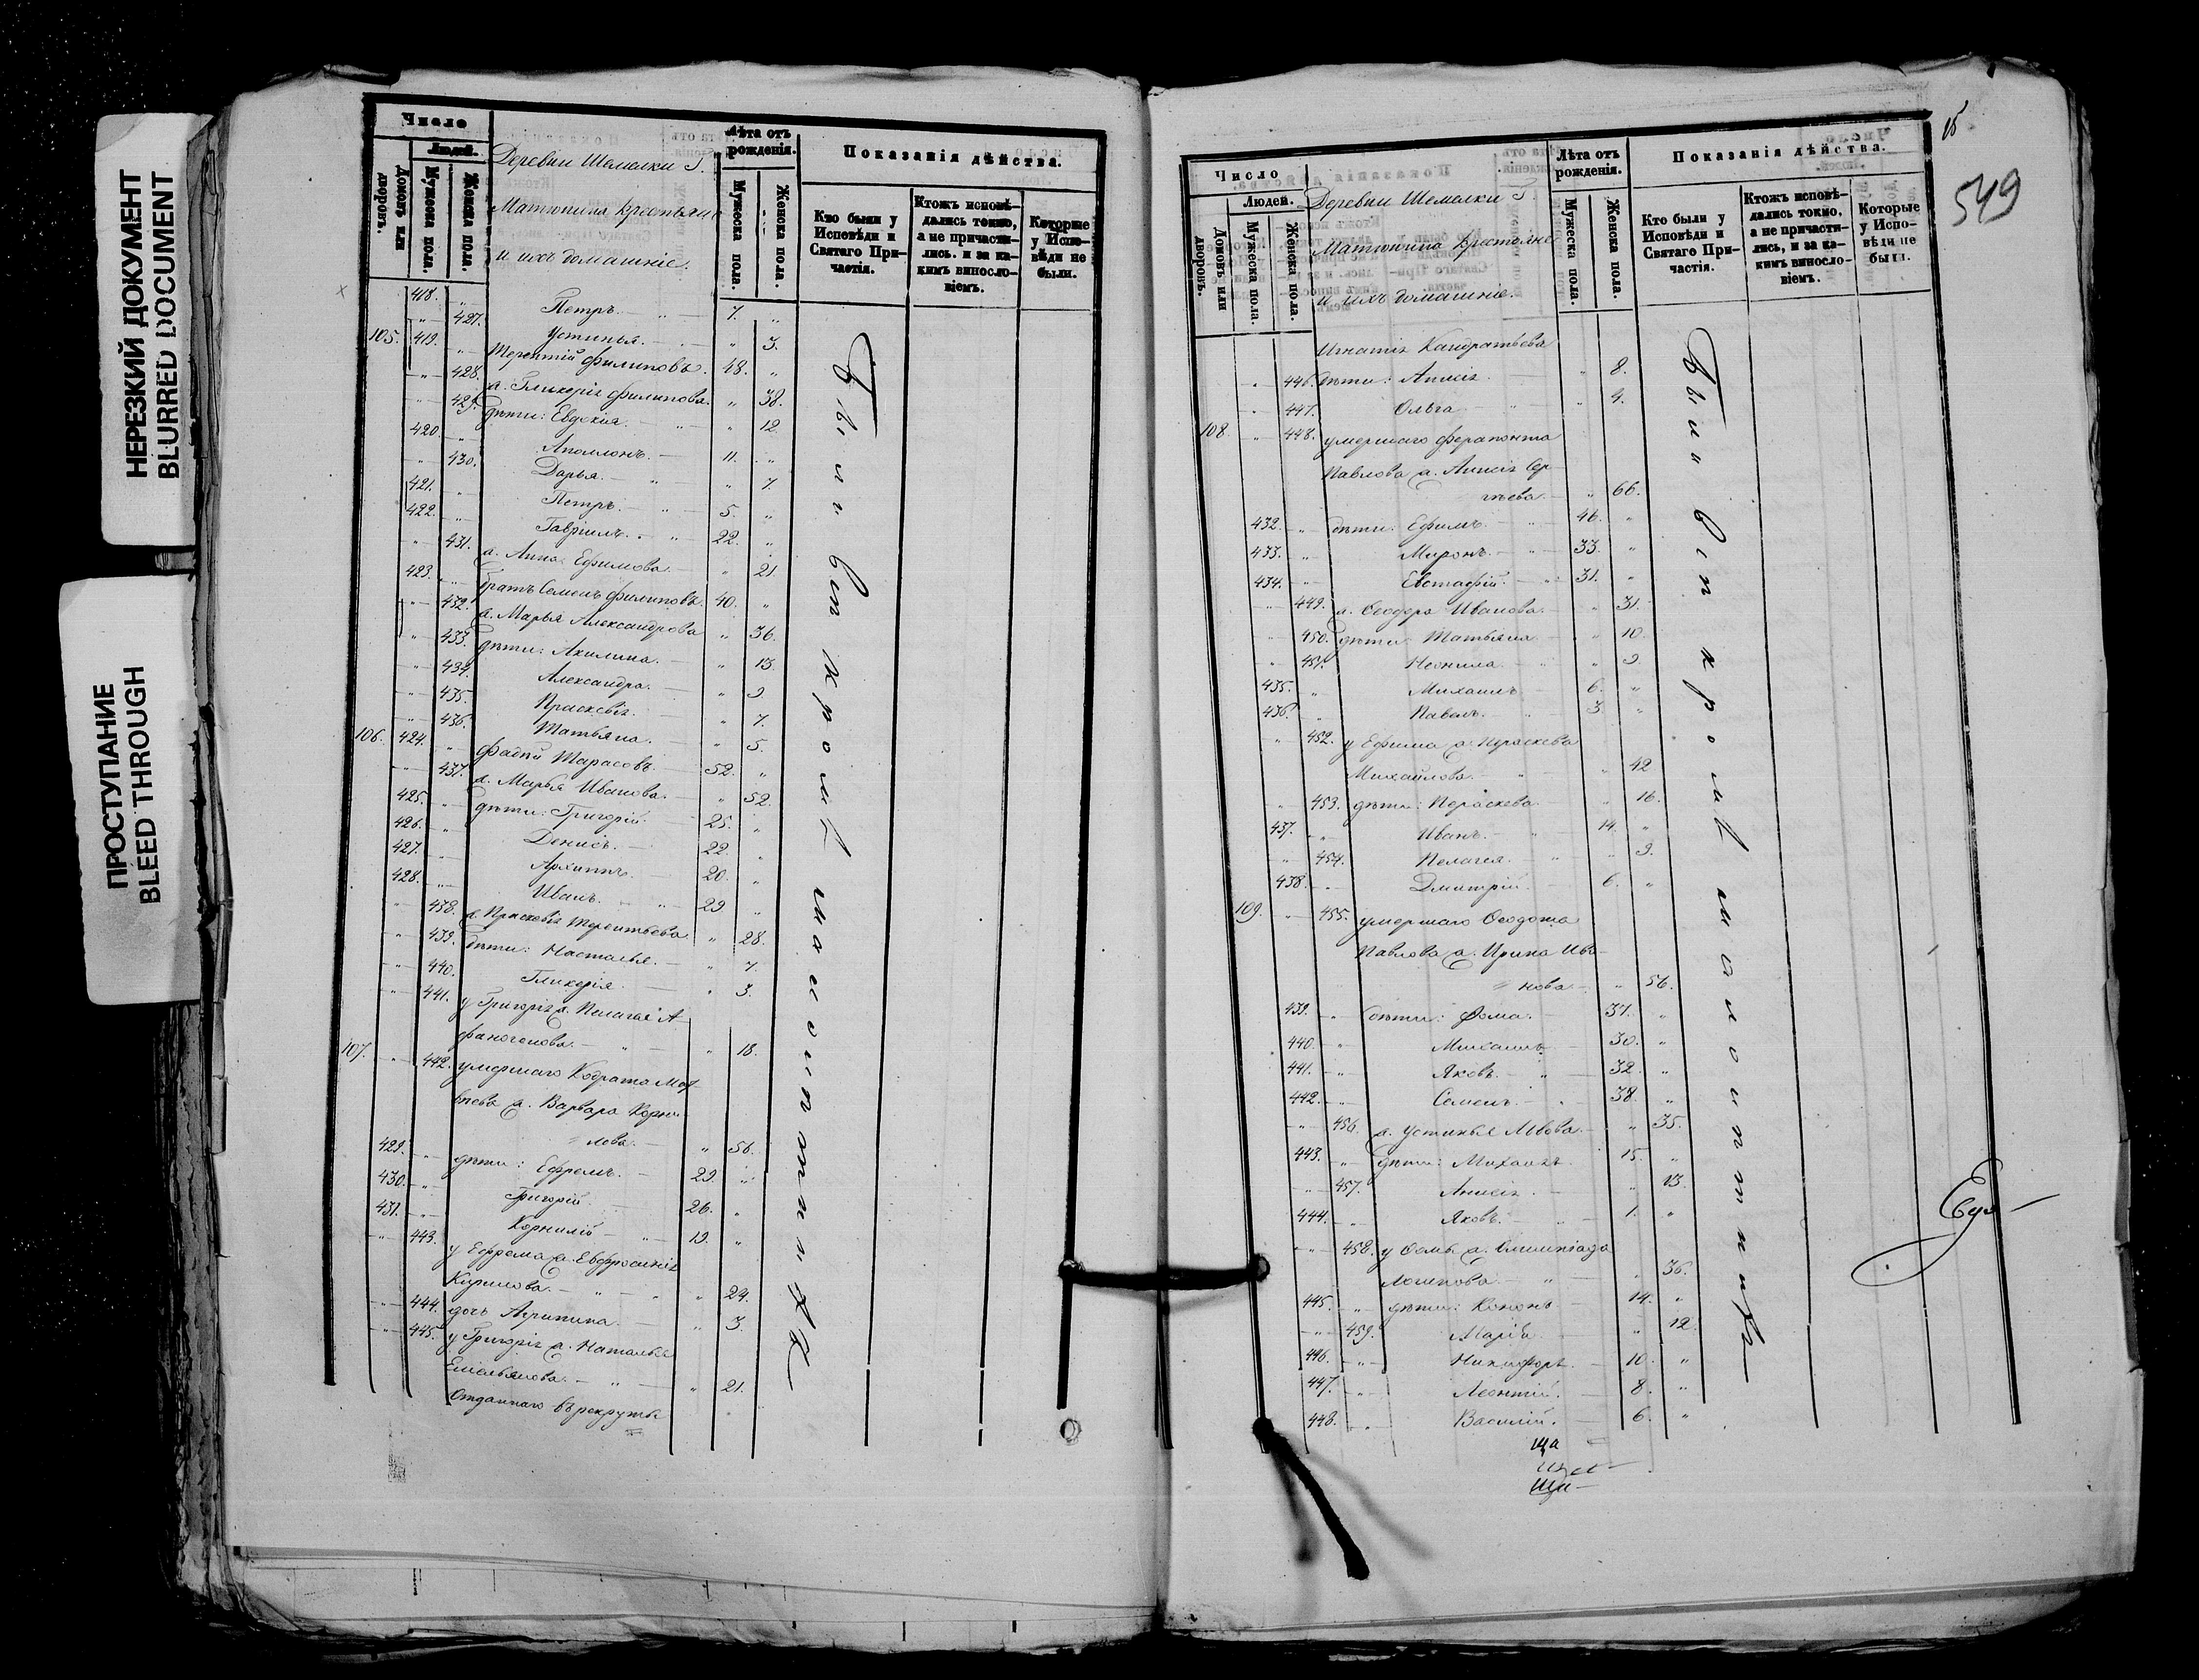 НЕРЕЗКИЙ ДОКУМЕНТ
BLURRED DOCUMENT
ПРОСТУПАНИЕ
BLEED THROUGH
Число
Людей.
Домовъ или дворовъ.
Мужеска пола.
Женска пола.
Деревни Шемалки Г.
Матюнина крестьяне
и ихъ домашніе.
Лѣта отъ рожденія.
Мужеска пола.
Женска пола.
Показанія дѣйства.
Кто были у Исповѣди и Святаго Причастія.
Ктожъ исповѣдались токмо, а не причастились, и за какимъ винословіемъ.
Которые у Исповѣди не были.
418. Петръ. 7.
427. Устинья. 3.
105. 419. Терентій Филиповъ. 48.
428. а. Гликерія Филипова. 38.
429. дѣти: Евдокія. 12.
420. Аполлонъ. 11.
430. Дарья. 7.
421. Петръ. 5.
422. Гавріилъ. 22.
431. а. Анна Ефимова. 21
423. братъ Семенъ Филиповъ. 40.
432. а. Марья Александрова 36.
433. дѣти: Акилина. 13.
434. Александра. 9
435. Прасковія. 7.
436. Татьяна. 5.
106. 424. Фадѣй Тарасовъ. 52.
437. а. Марья Иванова. 52.
425. дѣти: Григорій. 25.
426. Денисъ. 22.
427. Архиппъ. 20.
428. Иванъ. 29
438. а. Прасковія Терентьева. 28.
439. дѣти: Настасья. 7.
440. Гликерія. 3.
441. у Григорія а. Пелагея А-
фаногенова. 18.
107. 442. умершаго Кодрата Мат-
вѣева а. Варвара Корни-
лова. 56.
429. дѣти: Ефремъ. 29.
430. Григорій. 26.
431. Корнилій 19.
443. у Ефрема а. Евфросинія
Кирилова. 24.
444. дочь Агрипина. 3.
445. у Григорія а. Наталья
Емельянова. 21.
Отданнаго въ рекруты
Были въ
15
549
Число
Людей.
Домовъ или дворовъ.
Мужеска пола.
Женска пола.
Деревни Шемалки Г.
Матюнина крестьяне
и ихъ домашніе.
Лѣта отъ рожденія.
Мужеска пола.
Женска пола.
Показанія дѣйства.
Кто были у Исповѣди и Святаго Причастія.
Ктожъ исповѣдались токмо, а не причастились, и за какимъ винословіемъ.
Которые у Исповѣди не были.
Игнатія Кандратьева
446. дѣти: Анисія. 8.
447. Ольга 4.
108. 448. умершаго Ферапонта
Павлова а. Анисія Сер-
гѣева. 66.
432. дѣти: Ефимъ. 46.
433. Миронъ. 33.
434. Евстафій. 31.
449. а. Феодора Иванова. 31.
450. дѣти: Татьяна 10.
451. Неонила. 9.
435. Михаилъ 6.
436. Павелъ. 3.
452. у Ефима а. Параскева
Михайлова. 42
453. дѣти: Параскева. 16.
437. Иванъ. 14.
454. Пелагея. 9.
438. Дмитрій. 6.
109. 455. умершаго Феодота
Павлова а. Ирина Ива-
нова. 56.
439. дѣти: Фома. 37.
440. Михаилъ 30.
441. Яковъ. 32.
442. Семенъ. 38.
456. а. Устинья Львова. 35.
443. дѣти: Михаилъ. 15.
457. Анисія. 13.
444. Яковъ. 1.
458. у Фомы а. Олимпіада
Логинова. 36.
445. дѣти: Кононъ 14.
459. Марія. 12.
446. Никифоръ. 10.
447. Леонтій. 8.
448. Василій. 6.
Были